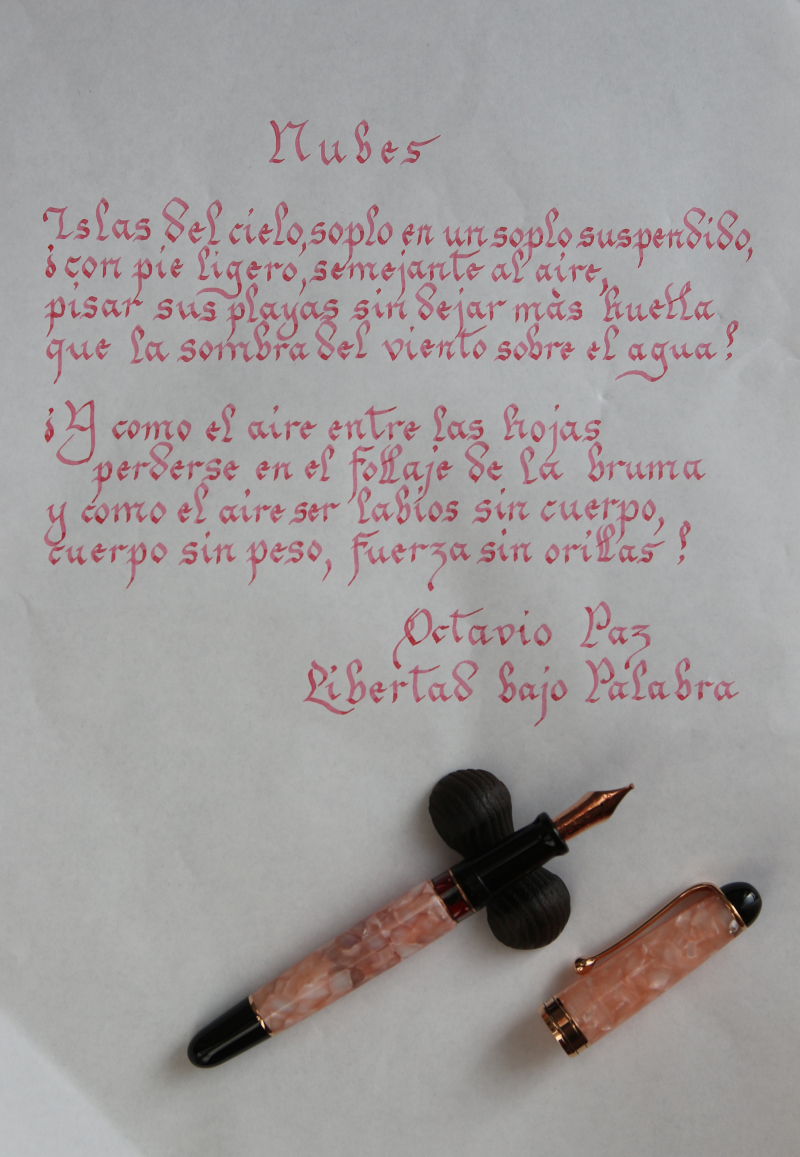 Nubes
Islas del cielo, soplo en un soplo suspendido,
¡con pie ligero, semejante al aire,
pisar sus playas sin dejar màs huella
que la sombra del viento sobre el agua!
¡Y como el aire entre las hojas
perderse en el follaje de la bruma
y como el aire ser labios sin cuerpo,
cuerpo sin peso, fuerza sin orillas!
Octavio Paz
Libertad bajo Palabra